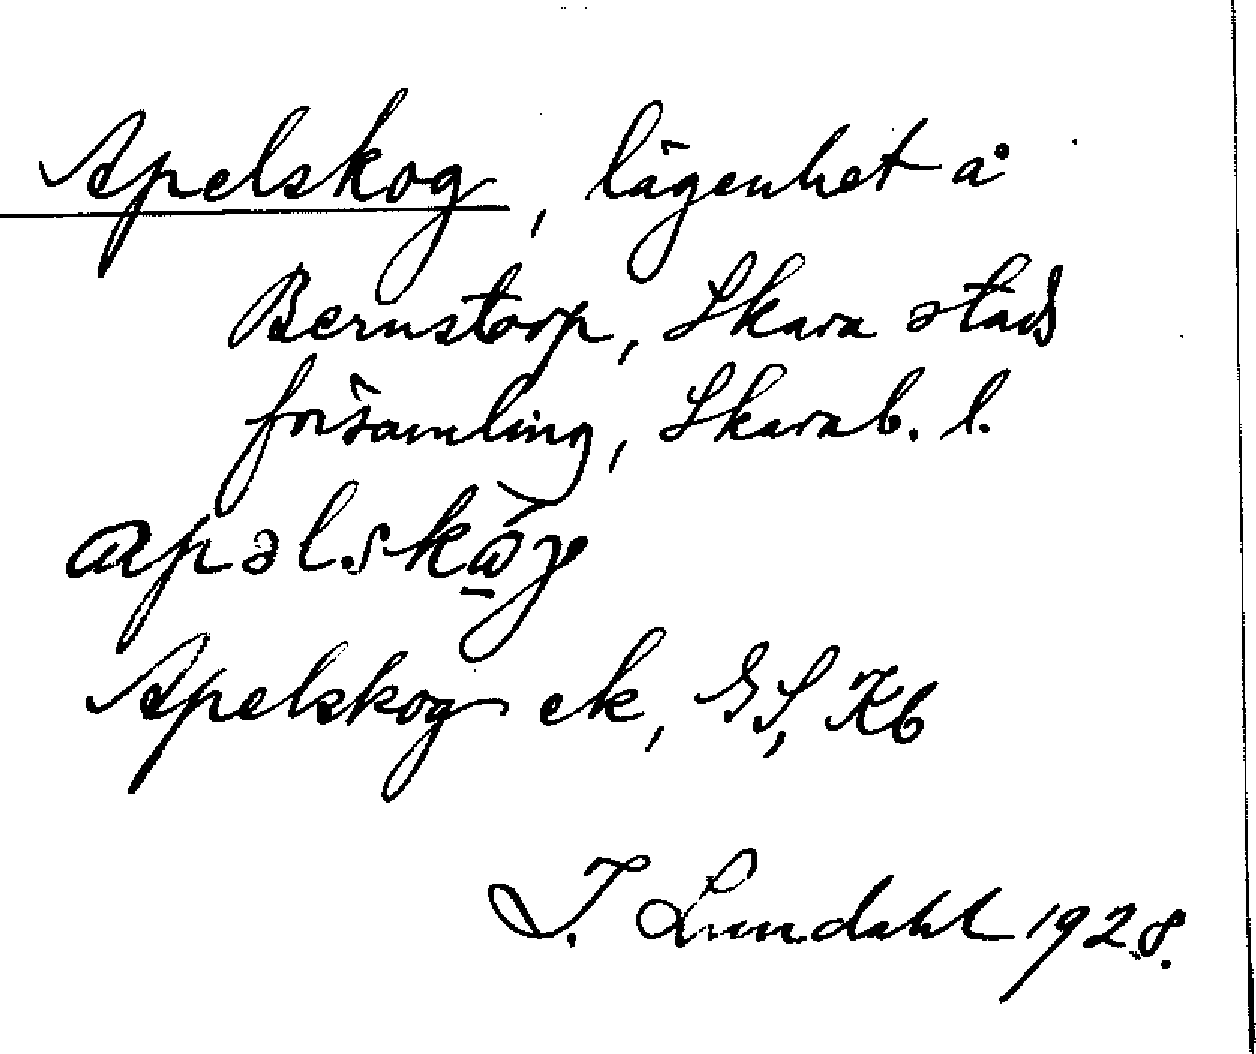 Apelskog, lägenhet å
Bernstorp, Skara stads
församling, Skarab. l.
apəlskåg
Apelskog ek, GS, Kb
I. Lundahl 1928.